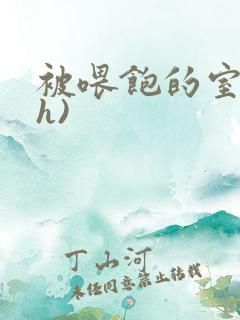 被喂饱的室
h)
丁山河
未经同意禁止转载